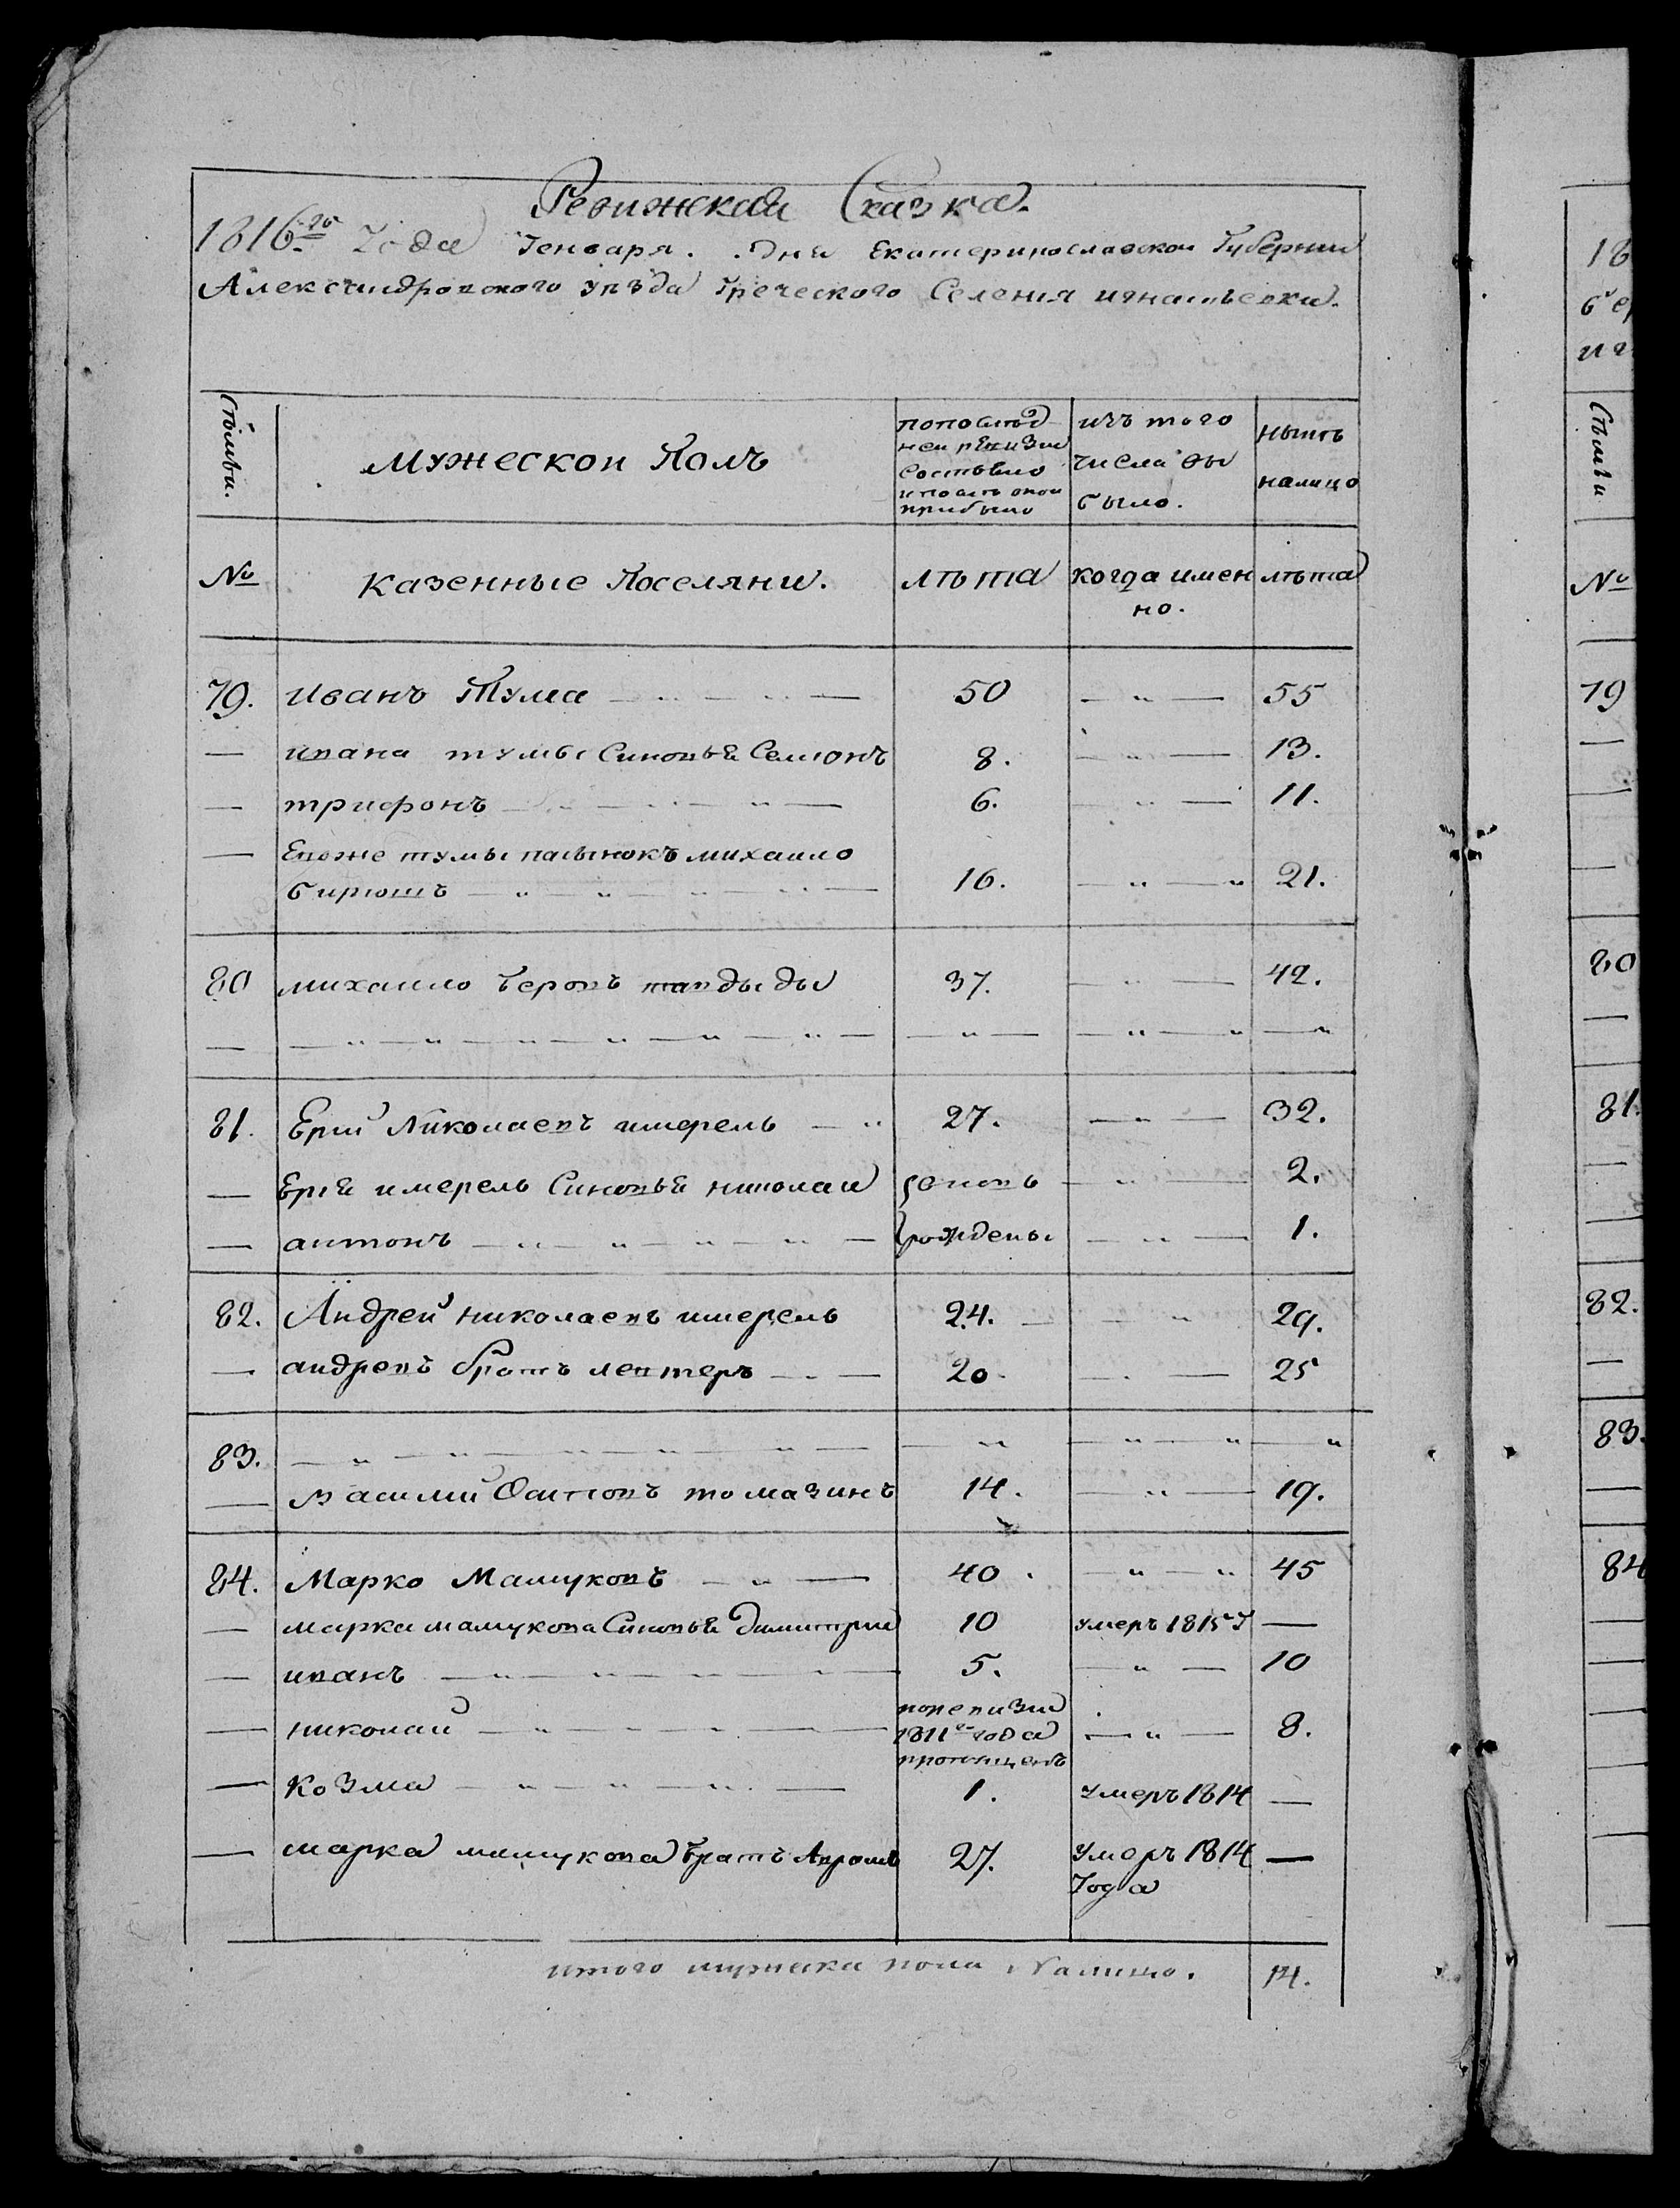 Ревижская Сказка.
1816го Года Генваря. Дня Екатеринославской Губернии
Александровского уѣзда Греческого Селения игнатьевки.
Стольби.
мужескои Полъ
попослѣд
неи ревизии
состояло
и послѣ онои
прибыло
изъ того
числа вы
было.
нынѣ
налицо
№
казенные Поселяни.
лѣта
когда имен
но.
лѣта
79. иванъ Тума — „ — „ — 50 — „ — 55
— ивана тумы Синовья Семіонъ 8. — „ — 13.
— трифонъ — „ — „ — „ — 6. — „ — 11.
— Евоже тумы пасынокъ михаило
бирюшъ — „ — „ — „ — „ — 16. — „ — „ 21.
80 михаило Черовъ 37. — „ — 42.
— — „ — „ — „ — „ — „ — „ — — „ — — „ — „ — „
81. Ерій Николаевъ имерель — „ 27. — „ — 32.
— Ерія имерель Синовья николаи вновь — „ — 2.
— антонъ — „ — „ — „ — „ — рождены — „ — 1.
82. Андрей николаевъ имерель 24. — — „ 29.
— андреевъ братъ левтеръ — „ — 20. — „ — 25
83. — „ — „ — „ — „ — — „ — „ — „ — „
— василий Осиповъ томазинъ 14. — „ — 19.
84. Марко Мамуковъ — „ — 40. — „ — „ 45
— марка мамукова Синовья Димитрии 10 умеръ 1815 Г —
— иванъ — „ — „ — „ — „ — 5. — „ — 10
поревизии
— николаи — „ — „ — „ — „ — 1811го года — „ — 8.
пропущенъ
— Козма — „ — „ — „ — 1. умеръ 1814 —
— марка мамукова братъ 27. умеръ 1814 —
Года
итого мужеска пола Налицо. 14.
18
бер
иг
Столъи
№
79
—
—
—
80
—
81.
—
—
82.
—
83.
—
84
—
—
—
—
—